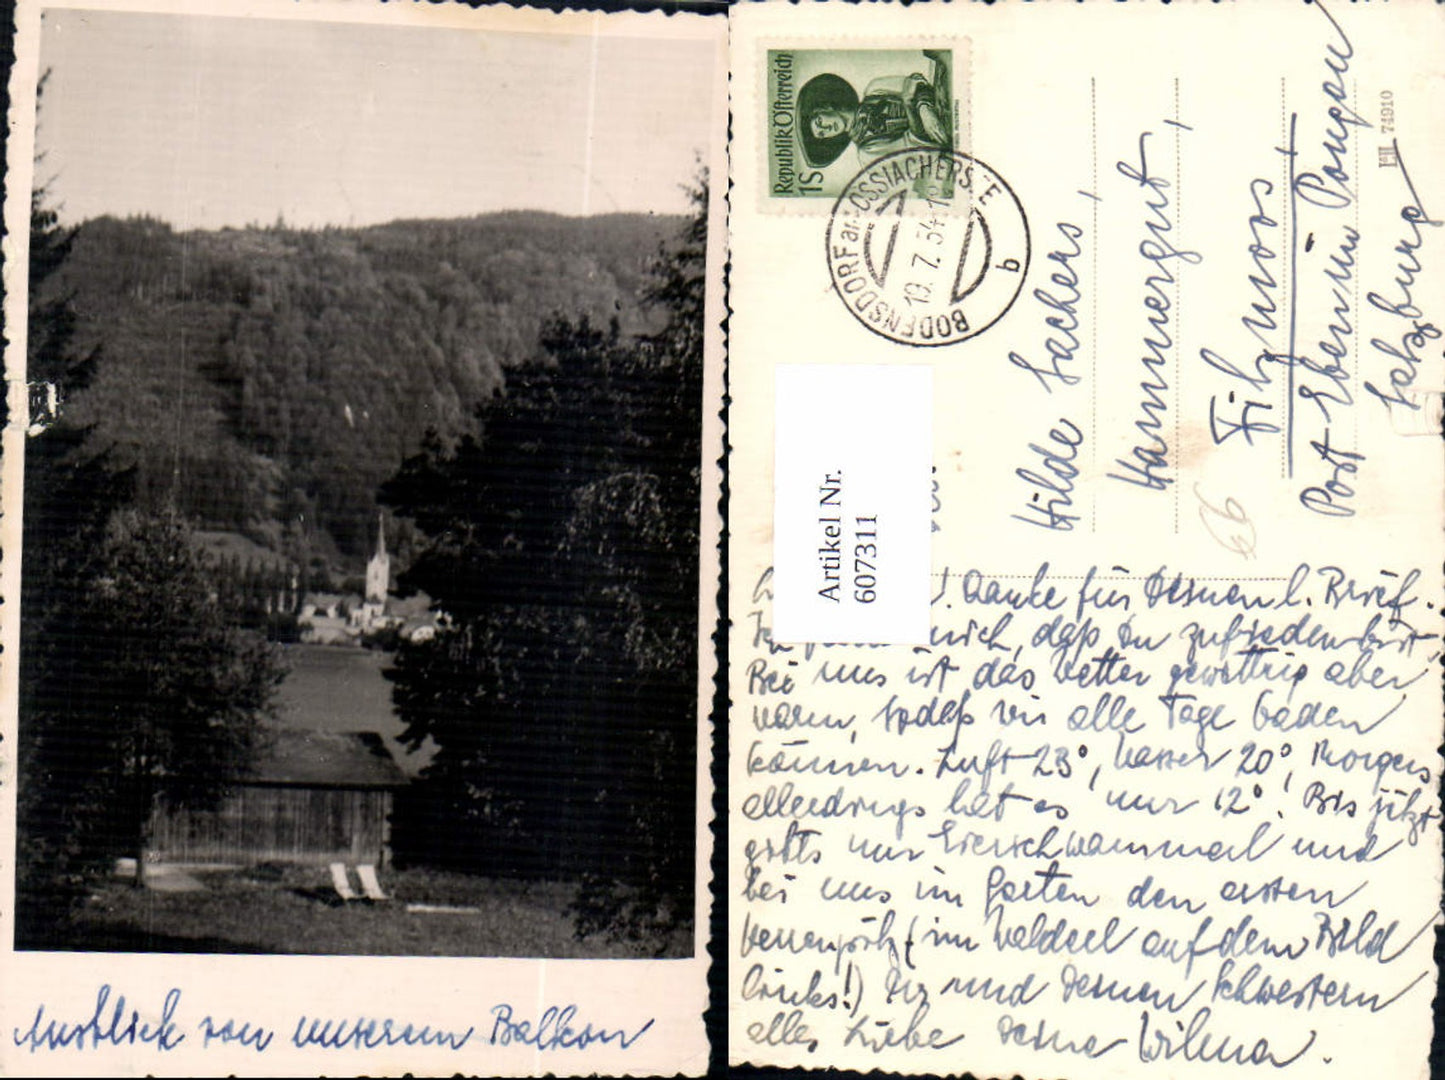 Ausblick von unserem Balkon
Republik Österreich
1S
BODENSDORF am OSSIACHERSEE
19.7.54
b
Artikel Nr.
607311
Hilde Sachers,
Hammergut,
Filzmoos
Post Eben im Pongau
Salzburg
74910
66
! Danke für Deinen l. Brief.
mich, daß Du zufrieden bist,
Bei uns ist das Wetter gewittrig aber
warm, sodaß wir alle Tage baden
können. Luft 23°, Wasser 20°, Morgens
allerdings hat es nur 12°! Bis jetzt
gibts nur Eierschwammerl und
bei uns im Garten den ersten
Herrenpilz (im Walderl auf dem Bild
links!) Dir und Deinen Schwestern
alles Liebe Deine Wilma.